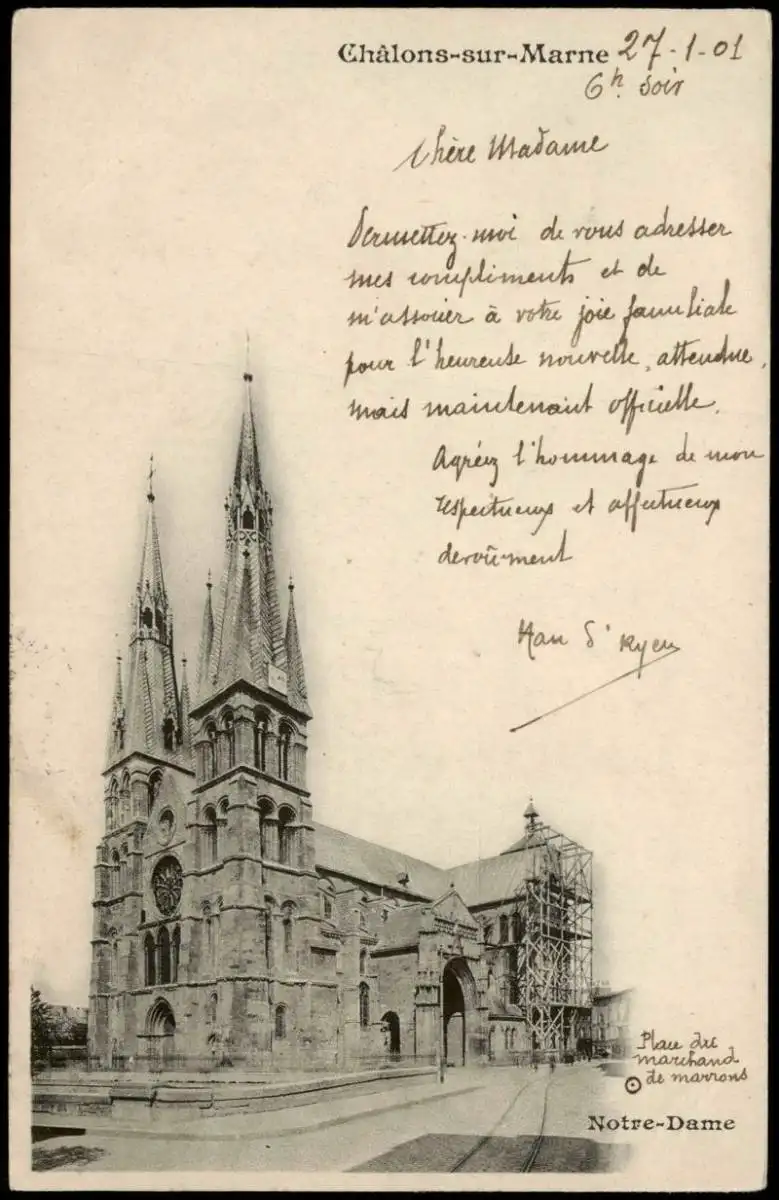 Châlons-sur-Marne 27-1-01
6h. Soir
Chère Madame
Permettez-moi de vous adresser
mes compliments et de
m'associer à votre joie familiale
pour l'heureuse nouvelle, attendue,
mais maintenant officielle.
Agréez l'hommage de mon
respectueux et affectueux
dévoûment
Place du
marchand
de marrons
Notre-Dame